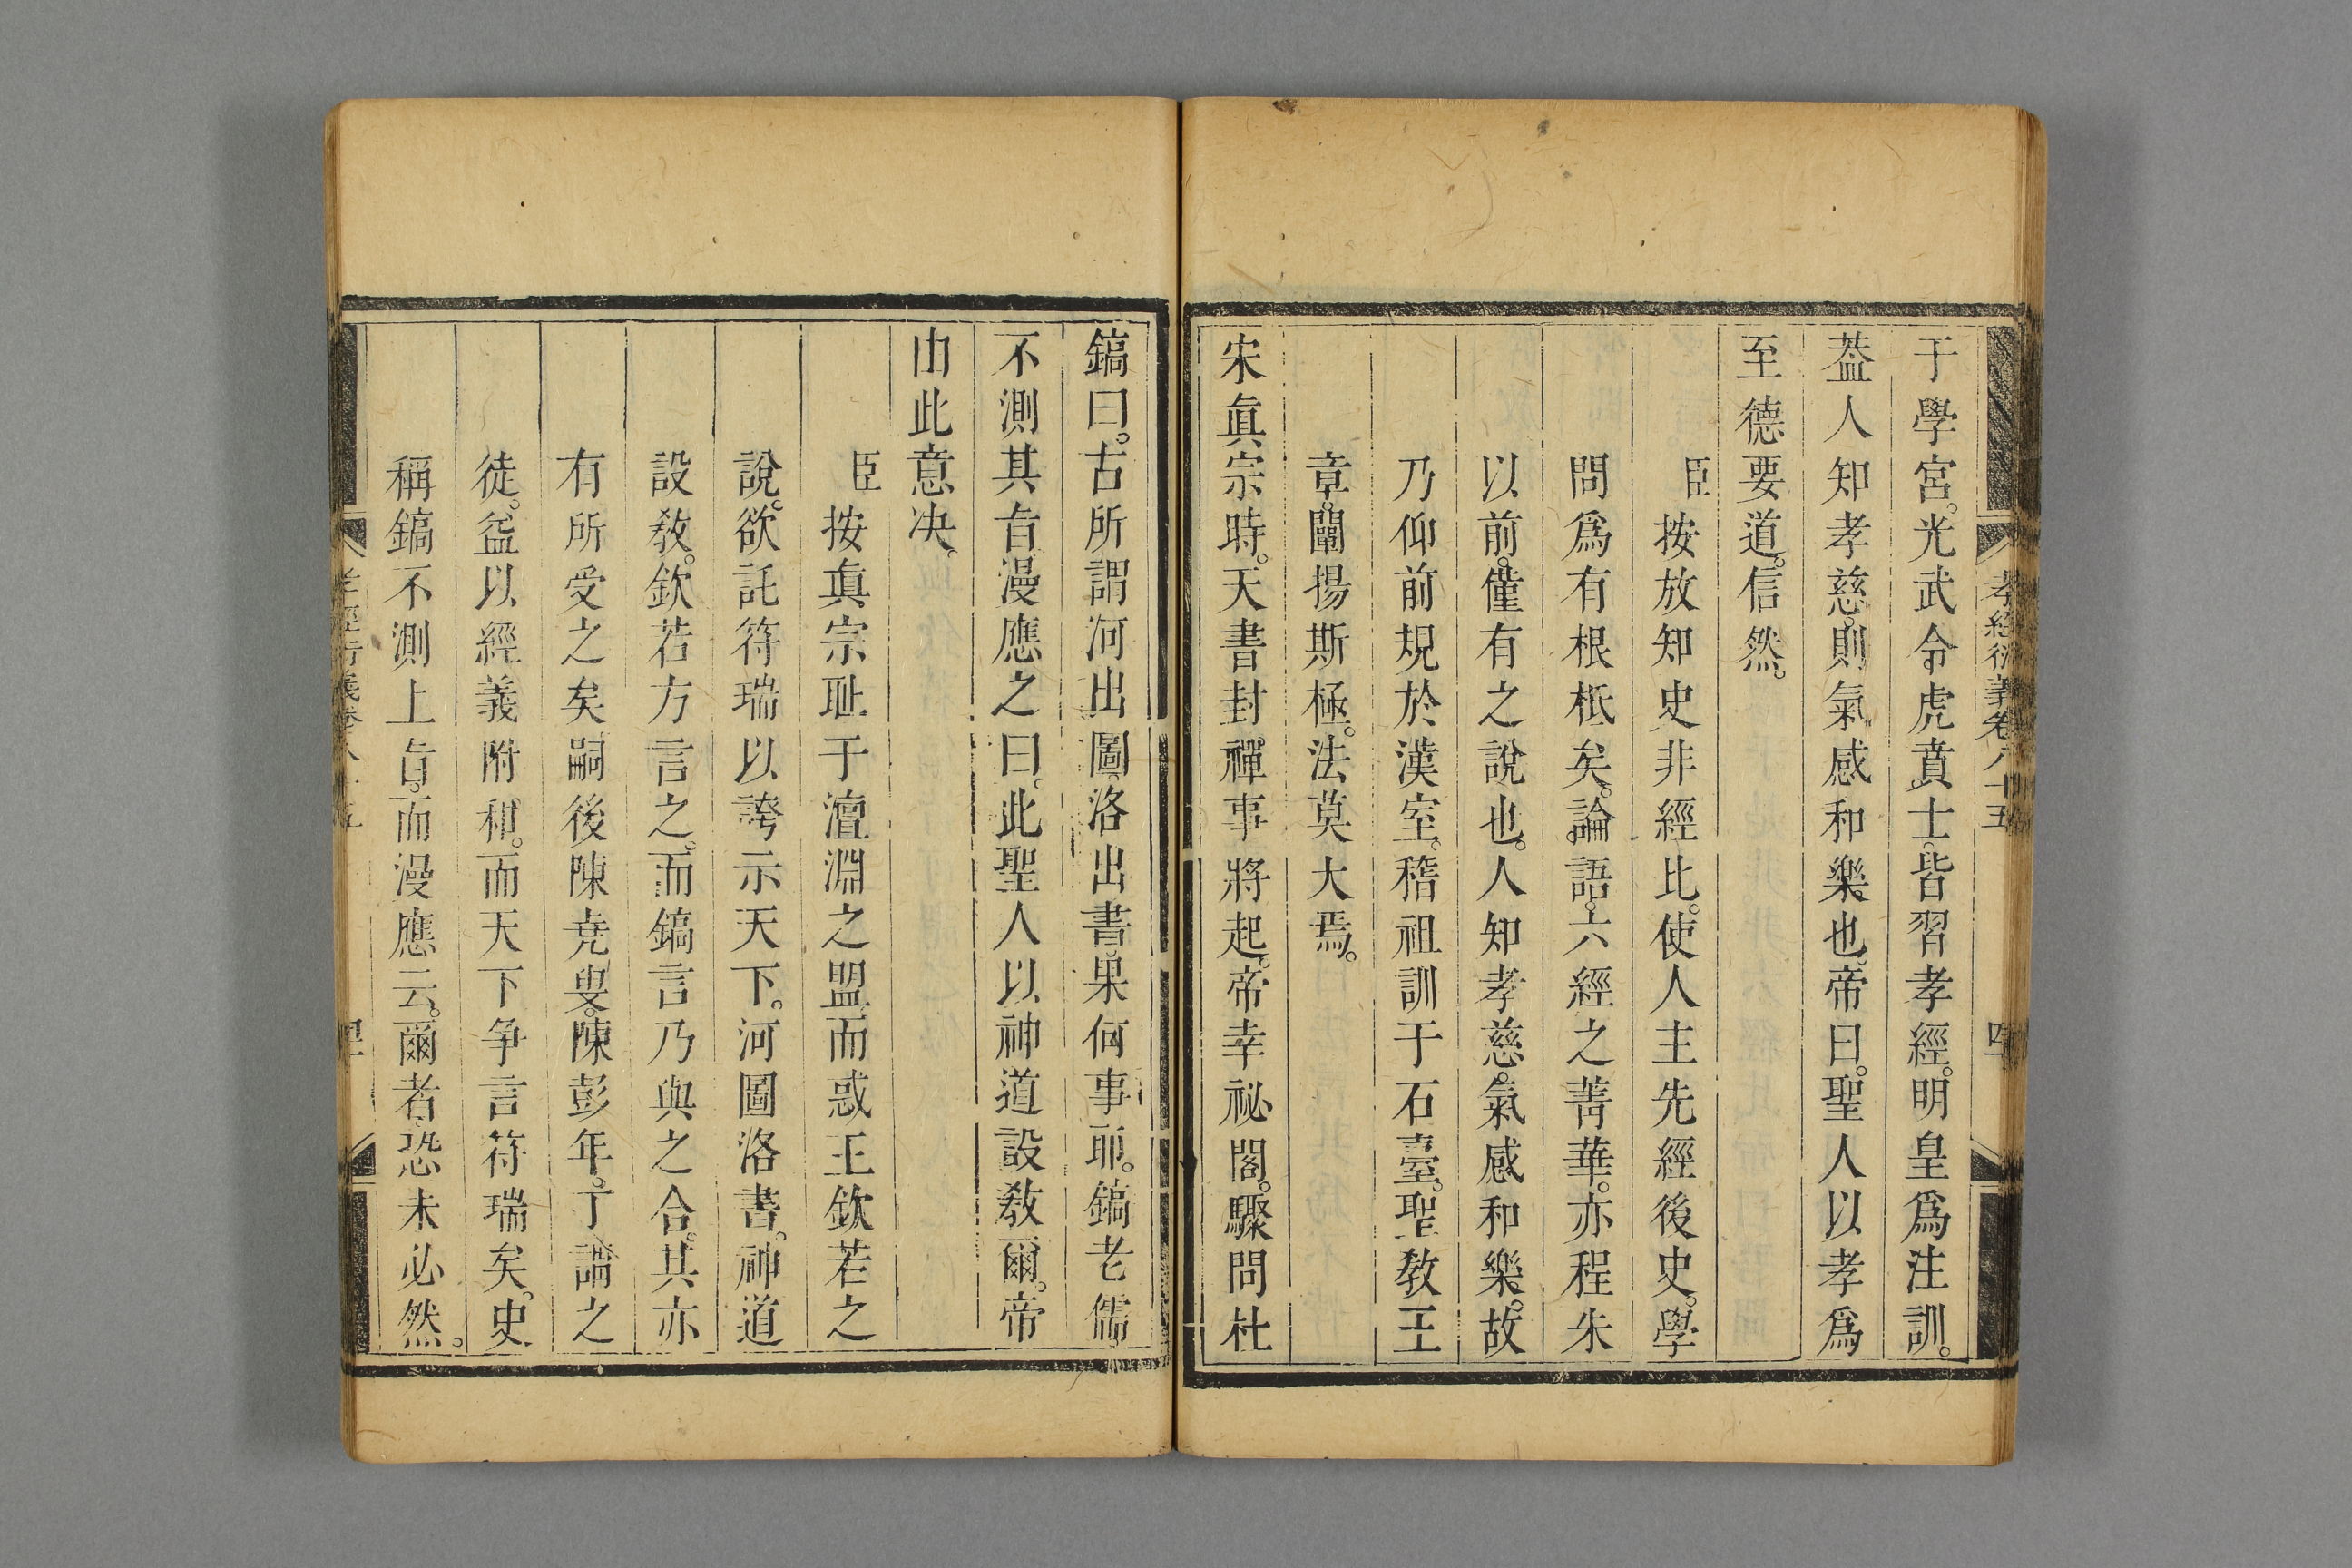 孝經衍義卷八十五 四
于學宮。光武令虎賁士。皆習孝經。明皇爲注訓。
葢人知孝慈。則氣感和樂也。帝曰。聖人以孝爲
至德要道。信然。
臣按放知史非經比。使人主先經後史。學
問爲有根柢矣。論語。六經之菁華。亦程朱
以前。僅有之說也。人知孝慈。氣感和樂。故
乃仰前規於漢室。稽祖訓于石臺。聖敎王
章。闡揚斯極。法莫大焉。
宋眞宗時。天書封禪事將起。帝幸祕閣。驟問杜
鎬曰。古所謂河出圖。洛出書。果何事耶。鎬老儒
不測其㫖。漫應之曰。此聖人以神道設敎爾。帝
由此意决。
臣按眞宗耻于澶淵之盟而惑王欽若之
說。欲託符瑞以誇示天下。河圖洛書。神道
設敎。欽若方言之。而鎬言乃與之合。其亦
有所受之矣。嗣後陳堯叟。陳彭年。丁謂之
徒。益以經義附和。而天下争言符瑞矣。史
稱鎬不測上㫖。而漫應云。爾者。恐未必然。
孝經衍義卷八十五